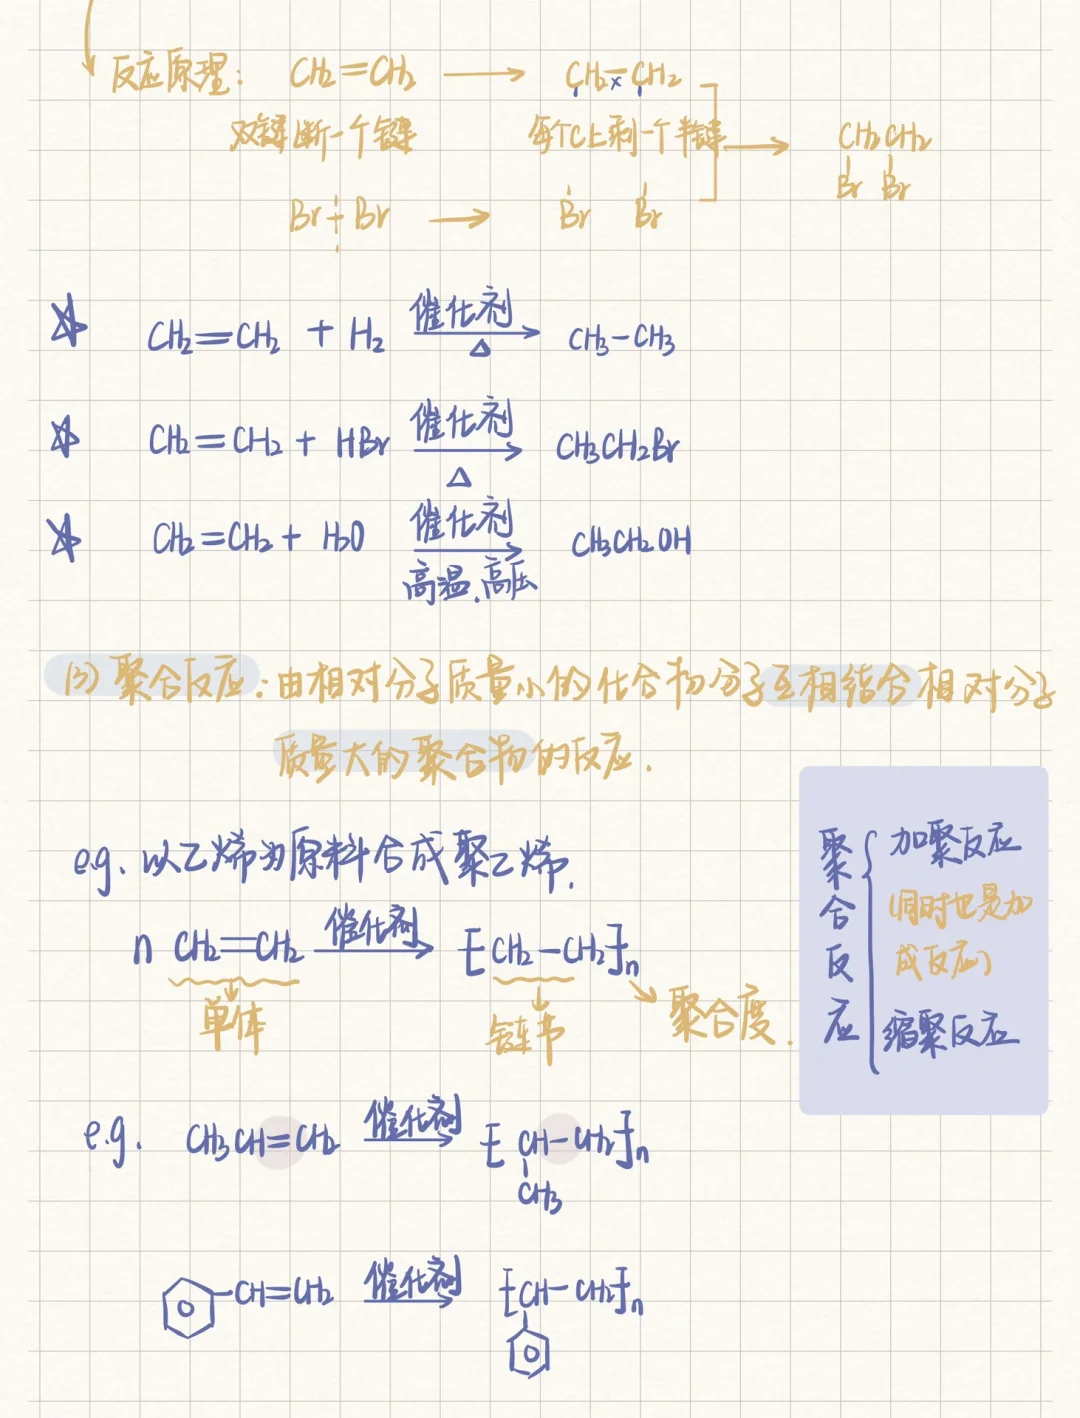 反应原理: CH2=CH2 ⟶ CH2=CH2
双键断一个键 每个C上剩一个半键 ⟶ CH2CH2
Br Br
Br+Br ⟶ Br Br
☆ CH2=CH2 + H2 催化剂 ⟶ △ CH3-CH3
☆ CH2=CH2 + HBr 催化剂 ⟶ △ CH3CH2Br
☆ CH2=CH2 + H2O 催化剂 ⟶ 高温.高压 CH3CH2OH
(3) 聚合反应:由相对分子质量小的化合物分子互相结合相对分子
质量大的聚合物的反应.
e.g. 以乙烯为原料合成聚乙烯.
n CH2=CH2 催化剂 ⟶ [CH2-CH2]n
单体 链节 聚合度.
聚合反应 { 加聚反应
(同时也是加
成反应)
缩聚反应
e.g. CH3CH=CH2 催化剂 ⟶ [CH-CH2]n
CH3
CH=CH2 催化剂 ⟶ [CH-CH2]n